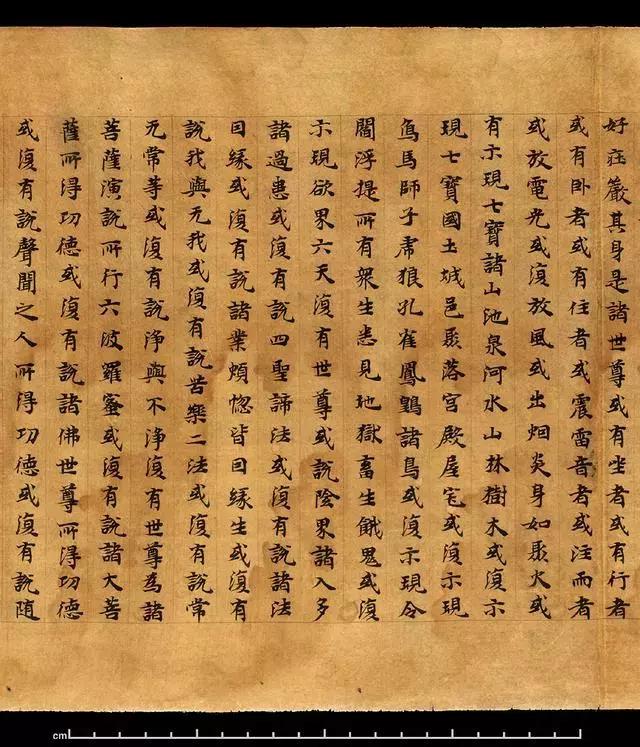 好莊嚴其身是諸世尊或有坐者或有行者
或有卧者或有住者或震雷音者或注雨者
或放電光或復放風或出烟炎身如聚火或
有示現七寶諸山池泉河水山林樹木或復示
現七寶國土城邑聚落宮殿屋宅或復示現
象馬師子虎狼孔雀鳳諸鳥或復示現令
閻浮提所有衆生悉見地獄畜生餓鬼或復
示現欲界六天復有世尊或說陰界諸入多
諸過患或復有說四聖諦法或復有說諸法
因緣或復有說諸業煩惱皆因緣生或復有
說我與无我或復有說苦樂二法或復有說常
无常等或復有說淨與不淨復有世尊為諸
菩薩演說所行六波羅蜜或復有說諸大菩
薩所得功德或復有說諸佛世尊所得功德
或復有說聲聞之人所得功德或復有說随
cm